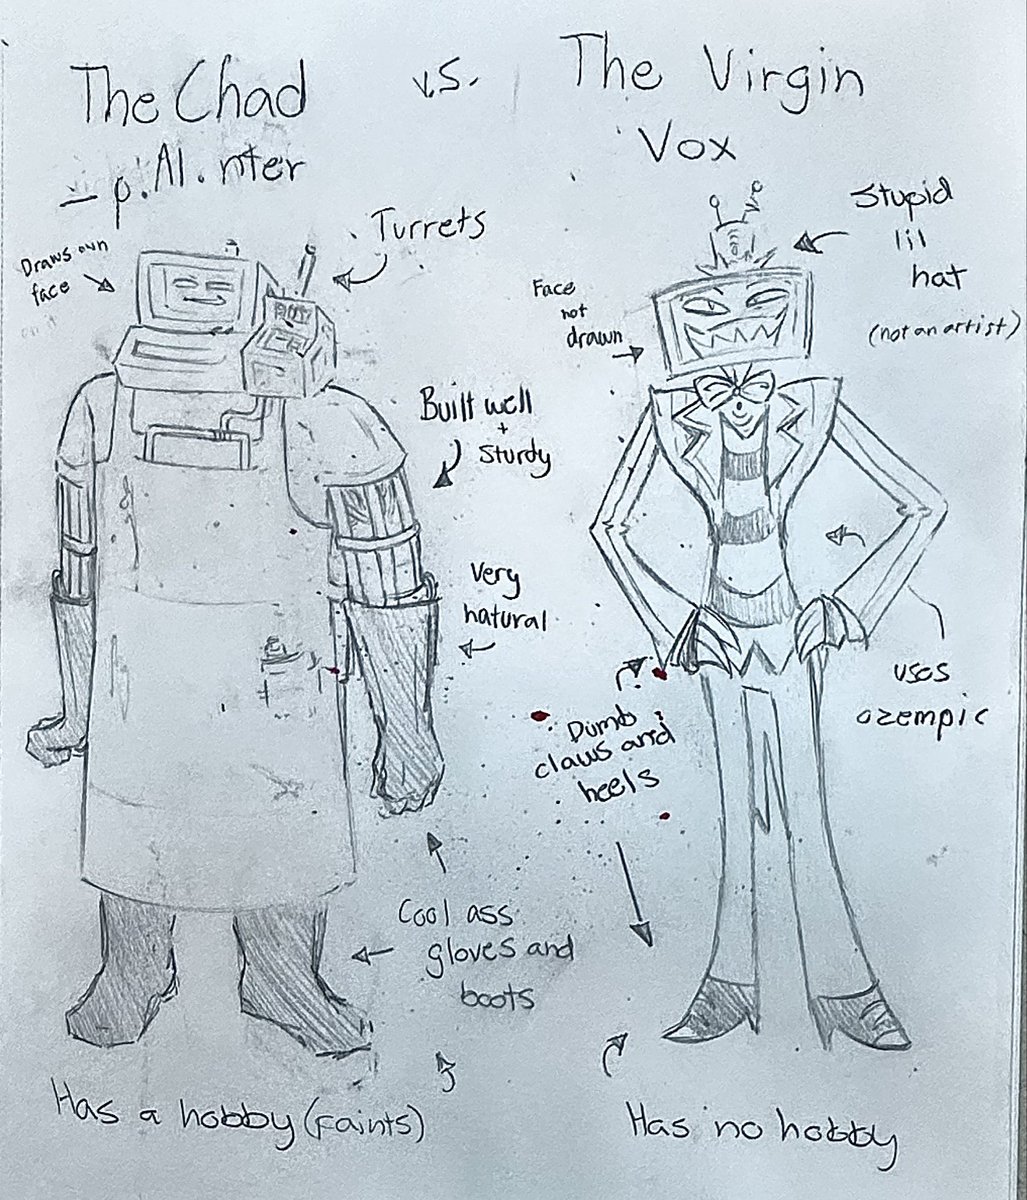 The Chad
vs.
The Virgin
- p.AI.nter
Vox
Draws own
face
Turrets
Stupid
lil
hat
(not an artist)
Face
not
drawn
Built well
+
sturdy
Very
natural
uses
ozempic
Dumb
claws and
heels
Cool ass
gloves and
boots
Has a hobby (paints)
Has no hobby